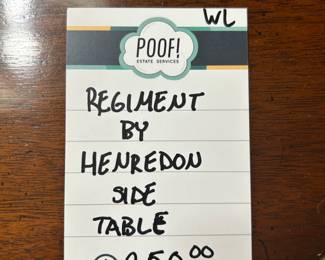 WL
POOF!
ESTATE SERVICES
REGIMENT
BY
HENREDON
SIDE
TABLE